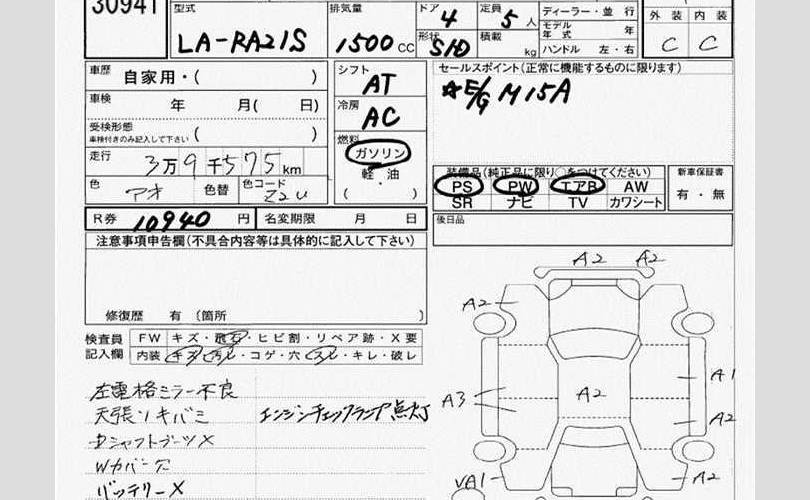 30941
型式 LA-RA21S
排気量 1500 CC
ドア 4
形状 S/D
定員 5 人
積載 kg
ディーラー・並行
モデル年式 年
ハンドル 左・右
外装 内装
C C
車歴 自家用・( )
車検 年 月( 日)
受検形態
車検付きのみ記入して下さい ( )
走行 3万9千575km
色 アオ 色替 色コード Z2U
シフト
AT
冷房
AC
燃料
ガソリン
軽油
( )
セールスポイント(正常に機能するものに限ります)
☆E/G M15A
装備品(純正品に限り○をつけてください)
PS PW エアB AW
SR ナビ TV カワシート
新車保証書
有・無
後日品
R券 10940 円 名変期限 月 日
注意事項申告欄(不具合内容等は具体的に記入して下さい)
修復歴 有 〔箇所 〕
検査員記入欄
FW キズ・飛石・ヒビ割・リペア跡・X要
内装 キズ・汚レ・コゲ・穴・スレ・キレ・破レ
左電格ミラー不良
天張ソキバミ エンジンチェックランプ点灯
Dシャフトブーツ×
Wカバー穴
バッテリー×
A2 A2
A2
A2
A3
A1
A2
A2